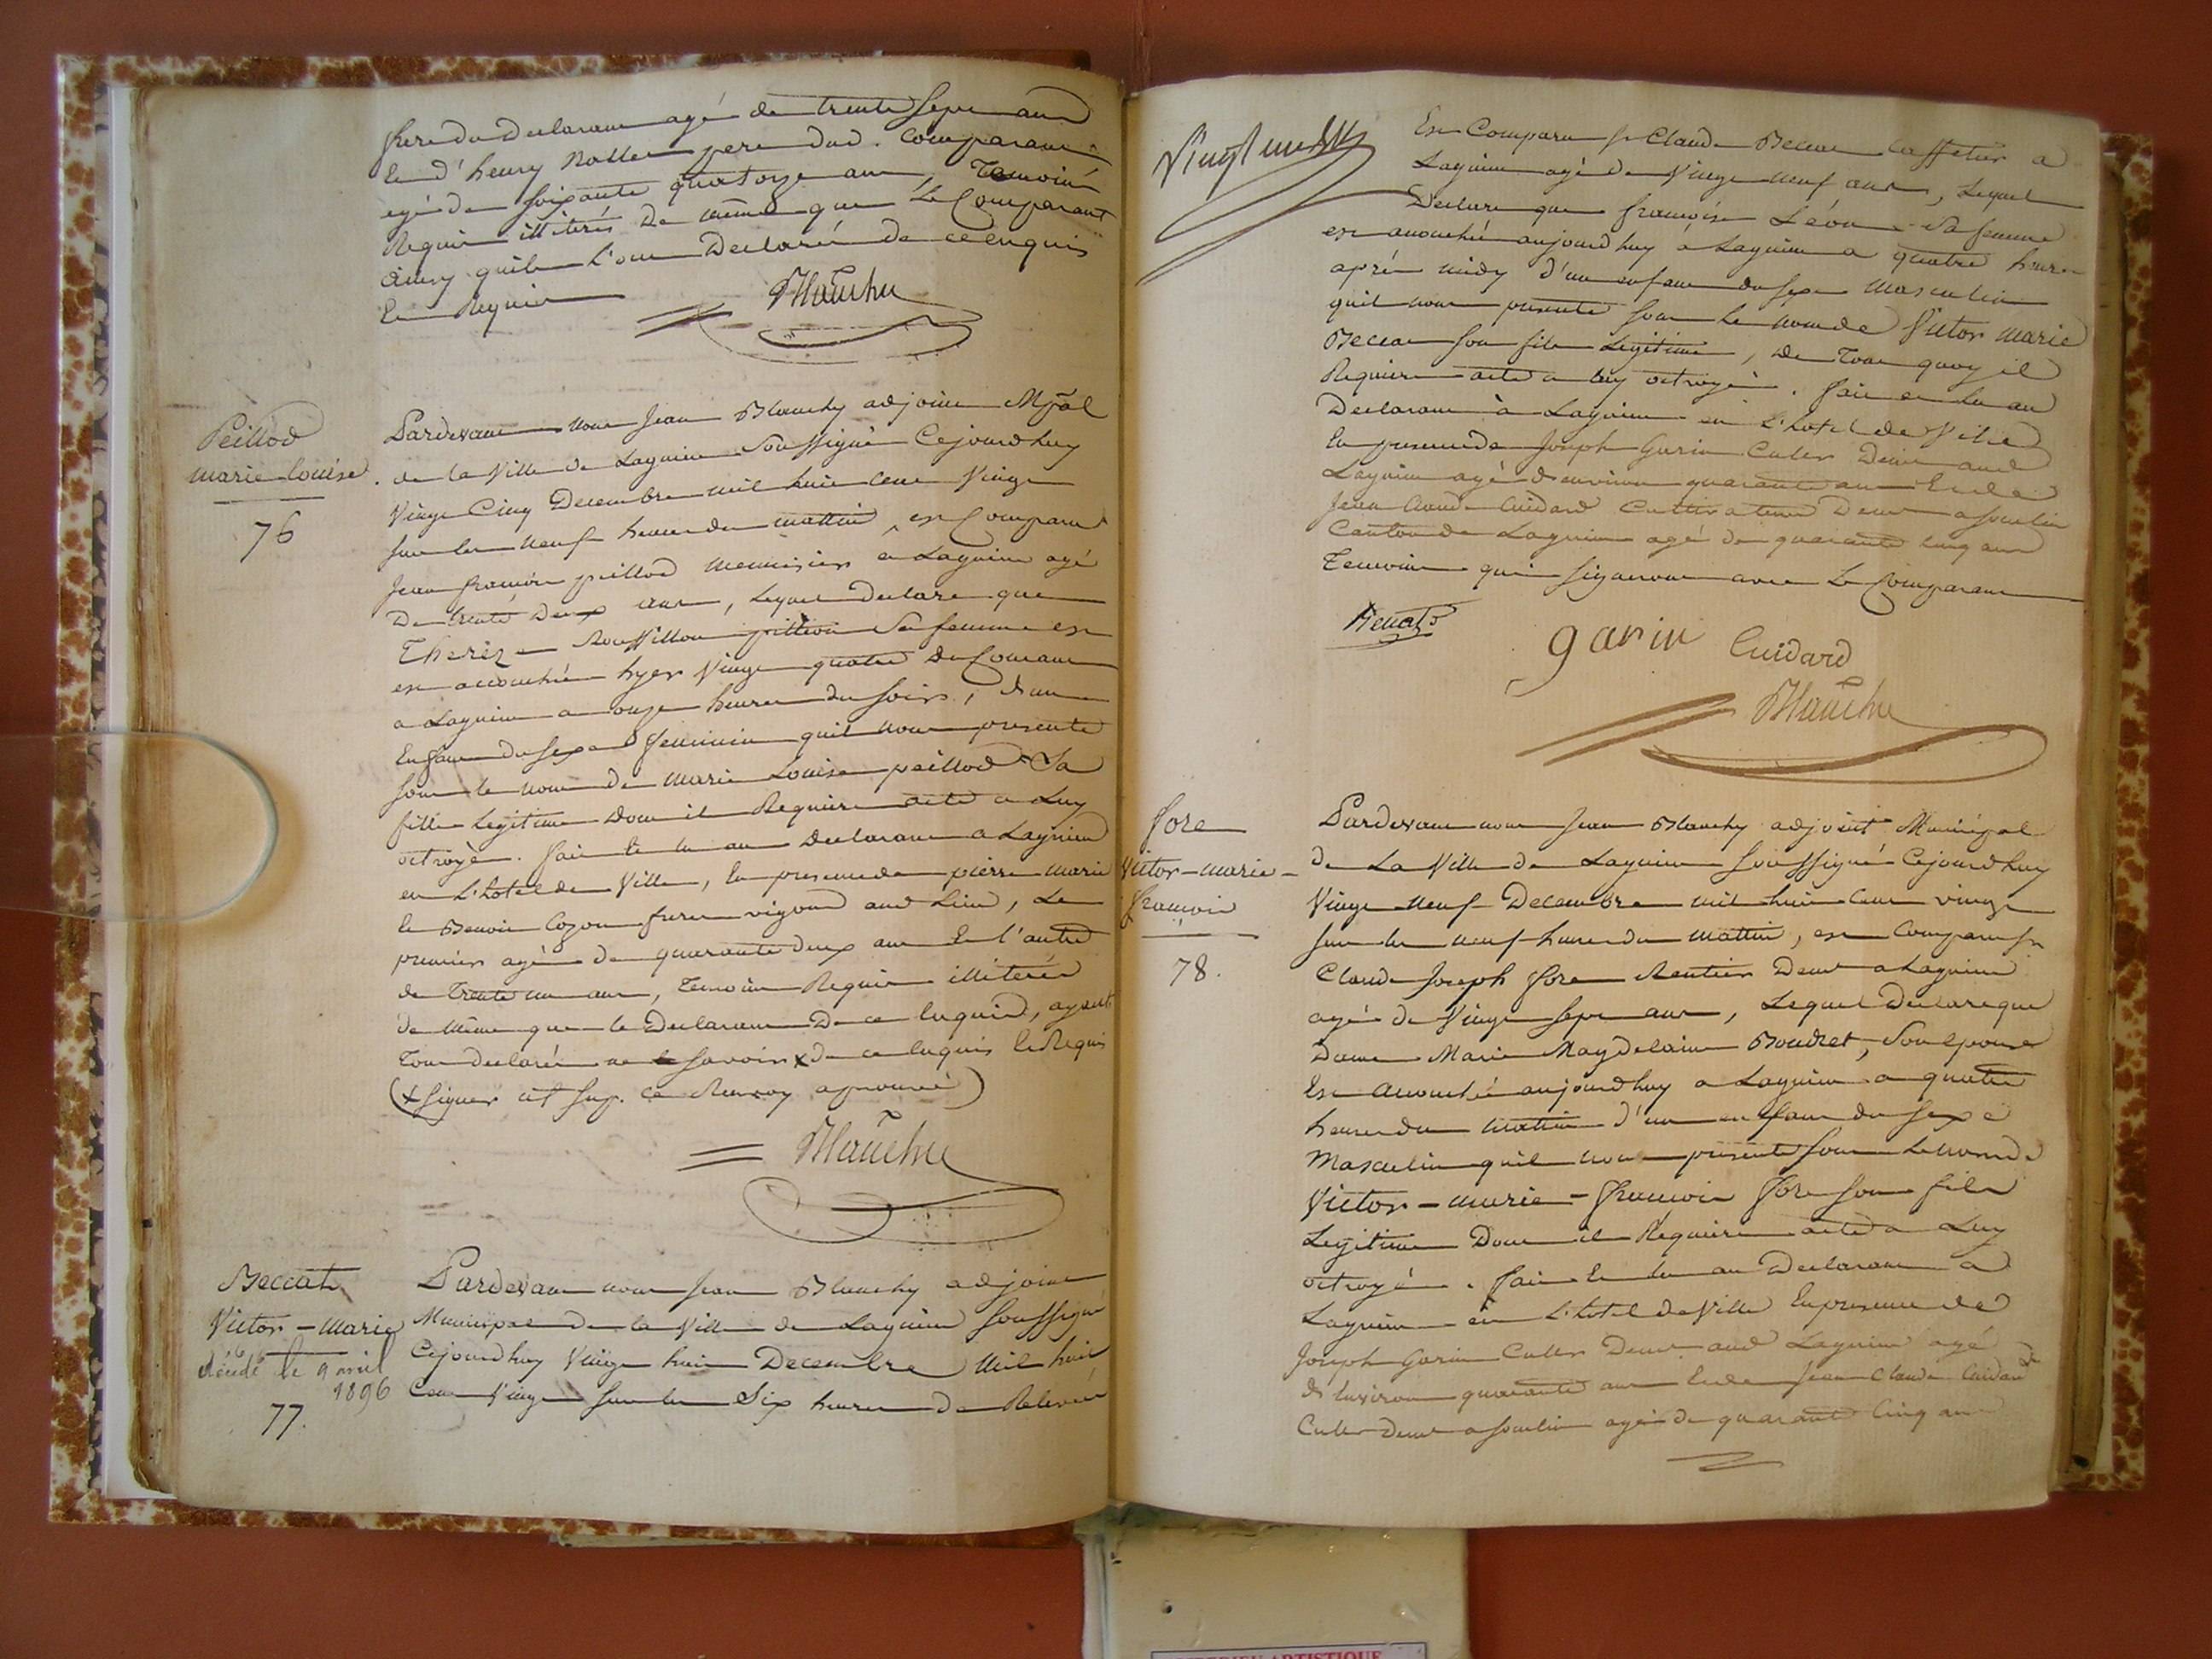 frere du declarant agé de trente sept ans
Et d'henry Nallet pere dud. Comparant
agé de soixante quatorze ans, Temoins
Requis illiterés de même que Le Comparant
ainsy quils l'ont Declarés de ce enquis
Et Requis
Blanchy
Peillod
marie-louise.
76
Pardevant nous Jean Blanchy adjoint Mpâl
de la Ville de Lagnieu Soussigné Cejourdhuy
Vingt Cinq Decembre mil huit cent Vingt
sur les neuf heures du mattin, est Comparu
Jean françois peillod menuisier à Lagnieu agé
De trente Deux ans, Lequel Declare que
Thereze Roussillon pittion Sa femme est
est accouchée hyer Vingt quatre du Courant
a Lagnieu a onze heures du soir, d'un
Enfant du sexe feminin quil nous presente
sous le nom de marie Louise peillod Sa
fille Legitime dont il Requiere acte a Luy
octroyé. fait et lu au Declarant a Lagnieu
en L'hotel de Ville, En presence de pierre marie
et Benoit Cozon freres vigons aud Lieu, Le
premier agé de quarante deux ans Et l'autre
de trente un ans, Temoins Requis illiterés
de même que le Declarant De ce Enquis, ayant
tous declarés ne savoir x de ce Enquis Et Requis
(x signer ut sup. ce Renvoy aprouvé)
Blanchy
Beccat
Victor-Marie
décédé le 9 avril
1896
77.
Pardevant nous Jean Blanchy adjoint
Municipal de la Ville de Lagnieu Soussigné
Cejourdhuy Vingt huit Decembre Mil huit
Cent Vingt sur les Six heures de Relevée
Vingt
Est Comparu sr Claude Beccat Caffetier a
Lagnieu agé de Vingt neuf ans, Lequel
Declare que françoise Léon Sa femme
est accouchée aujourdhuy à Lagnieu a quatre heures
après midy d'un enfant du sexe Masculin
quil nous presente sous le nom de Victor Marie
Beccat son fils Legitime, de Tout quoy il
Requiere acte a luy octroyé. fait et lu au
Declarant à Lagnieu en L'hotel de Ville
En presence de Joseph Garin Culter Demt aud
Lagnieu agé d'environ quarante ans Et de
Jean Claude Cuidard Cultivateur Demt a souclin
Canton de Lagnieu agé de quarante Cinq ans
Temoins qui signeront avec Le Comparant
Beccat
garin Cuidard
Blanchy
fore
Victor-marie-
françois
78.
Pardevant nous Jean Blanchy adjoint Municipal
de La Ville de Lagnieu Soussigné Cejourdhuy
Vingt Neuf Decembre mil huit Cent vingt
sur les neuf heures du mattin, est Comparu sr
Claude Joseph fore Rentier Demt a Lagnieu
agé de Vingt sept ans, Lequel Declare que
Dame Marie Magdelaine Boudret, Son Epouse
Est accouchée aujourdhuy a Lagnieu a quatre
heures du mattin d'un enfant du sexe
Masculin quil nous presente sous Le nom de
Victor-marie-françois fore son fils
Legitime Dont il Requiere acte a Luy
octroyé. fait Et lu au Declarant a
Lagnieu en L'hotel de Ville En presence de
Joseph Garin Culter Demt aud Lagnieu agé
d'Environ quarante ans Et de Jean Claude Cuidard
Culter demt a souclin agé de quarante Cinq ans